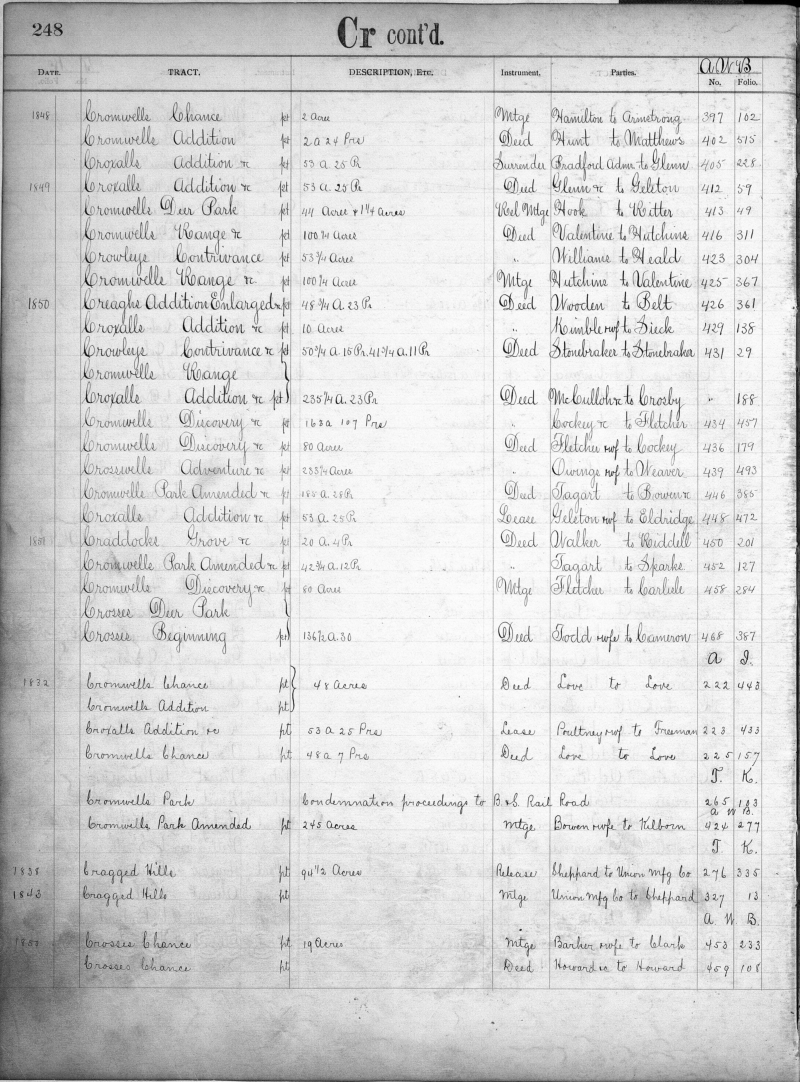 248 Cr cont'd.
A W B
DATE. TRACT. DESCRIPTION, ETC. Instrument. Parties. No. Folio.
1848 Cromwells Chance pt 2 Acres Mtge Hamilton to Armstrong 397 102
Cromwells Addition pt 2 a 24 Prs Deed Hunt to Matthews 402 515
Croxalls Addition &c pt 53 a. 25 P. Surrender Bradford Admr. to Glenn 405 228
1849 Croxalls Addition &c pt 53 a. 25 Pr Deed Glenn &c to Geleton 412 59
Cromwells Deer Park pt 44 Acres & 1 1/4 acres Rel Mtge Hook to Ritter 413 49
Cromwells Range &c pt 100 3/4 Acres Deed Valentine to Hutchins 416 311
Crowleys Contrivance pt 53 3/4 Acres " Williams to Heald 423 304
Cromwells Range &c. pt 100 3/4 Acres Mtge Hutchins to Valentine 425 367
1850 Creaghs Addition Enlarged &c pt 48 3/4 A. 23 Pr Deed Wooden to Belt 426 361
Croxalls Addition &c pt 10 Acres " Kimble & wf to Sieck 429 138
Crowleys Contrivance &c pt 50 3/4 A. 15 Pr. 41 3/4 A. 11 Pr Deed Stonebraker to Stonebraker 431 29
Cromwells Range
Croxalls Addition &c pt 235 3/4 A. 23 Pr Deed McCulloh &c to Crosby " 188
Cromwells Discovery &c pt 163 a 107 Prs " Cockey &c to Fletcher 434 457
Cromwells Discovery &c pt 80 Acres Deed Fletcher & wf to Cockey 436 179
Crosswells Adventure &c pt 233 3/4 Acres " Owings & wf to Weaver 439 493
Cromwells Park Amended &c pt A. 28 Pr Deed Tagart to Bowen &c 446 385
Croxalls Addition &c pt 53 a. 25 Pr Lease Geleton & wf to Eldridge 448 472
1851 Craddocks Grove &c pt 20 A. 4 Pr Deed Walker to Riddell 450 201
Cromwells Park Amended &c pt 42 3/4 A. 12 Pr " Tagart to Sparks 452 127
Cromwells Discovery &c pt 80 Acres Mtge Fletcher to Carlisle 458 284
Crosses Deer Park
Crosses Beginning pt 136 1/2 A. 30 Deed Todd & wfe to Cameron 468 387
A I.
1832 Cromwells Chance pt 48 Acres Deed Love to Love 222 443
Cromwells Addition pt
Croxalls Addition &c pt 53 a 25 Prs Lease Poultney & wf to Freeman 223 433
Cromwells Chance pt 48 a 7 Prs Deed Love to Love 225 157
T. K.
Cromwells Park Condemnation proceedings to B. & S. Rail Road 265 183
A W B.
Cromwells Park Amended pt 245 Acres Mtge Bowen & wfe to Kilborn 424 277
T K.
1838 Cragged Hills pt 94 1/2 Acres Release Sheppard to Union Mfg Co 276 335
1843 Cragged Hills pt Mtge Union Mfg Co to Sheppard 327 13
A. W. B.
1851 Crosses Chance pt 19 Acres Mtge Barker & wfe to Clark 453 233
Crosses Chance pt Deed Howard &c to Howard 459 108